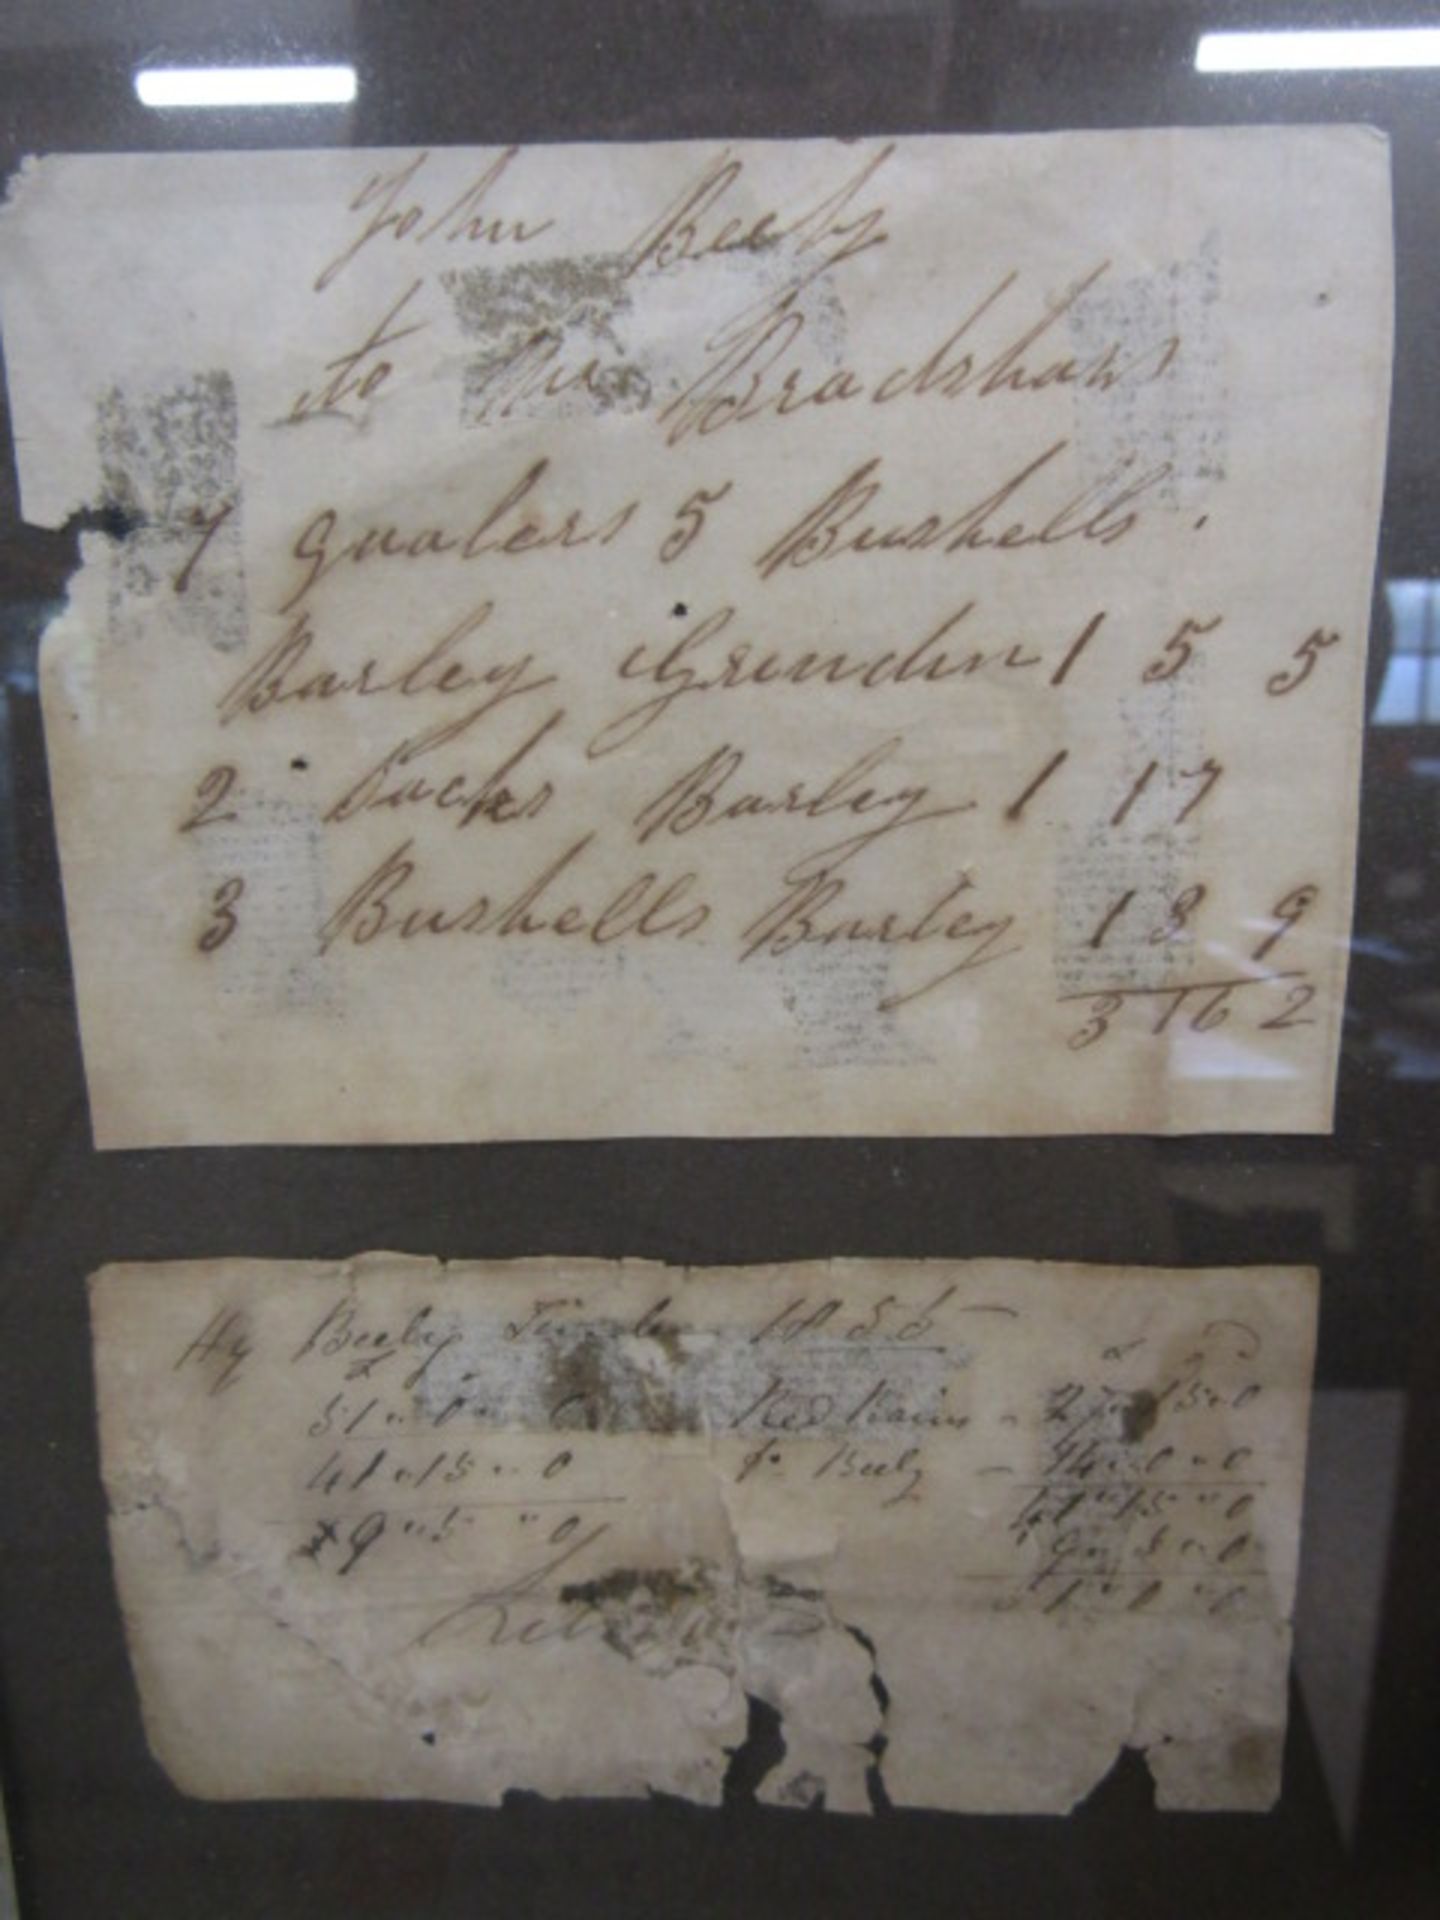 John Beeby
to Mr Bradshaw
7 Quaters 5 Bushells.
Barley Grindin 1 5 5
2 Sacks Barley 1 17
3 Bushells Barley 13 9
3 16 2
Hy Beeby 1855
£ £
51 " 0 " 0 Red Barn - 27 " 15 " 0
41 " 15 " 0 Beeby - 14 " 0 " 0
41 " 15 " 0
9 " 5 " 0
9 " 5 " 0
51 " 0 " 0